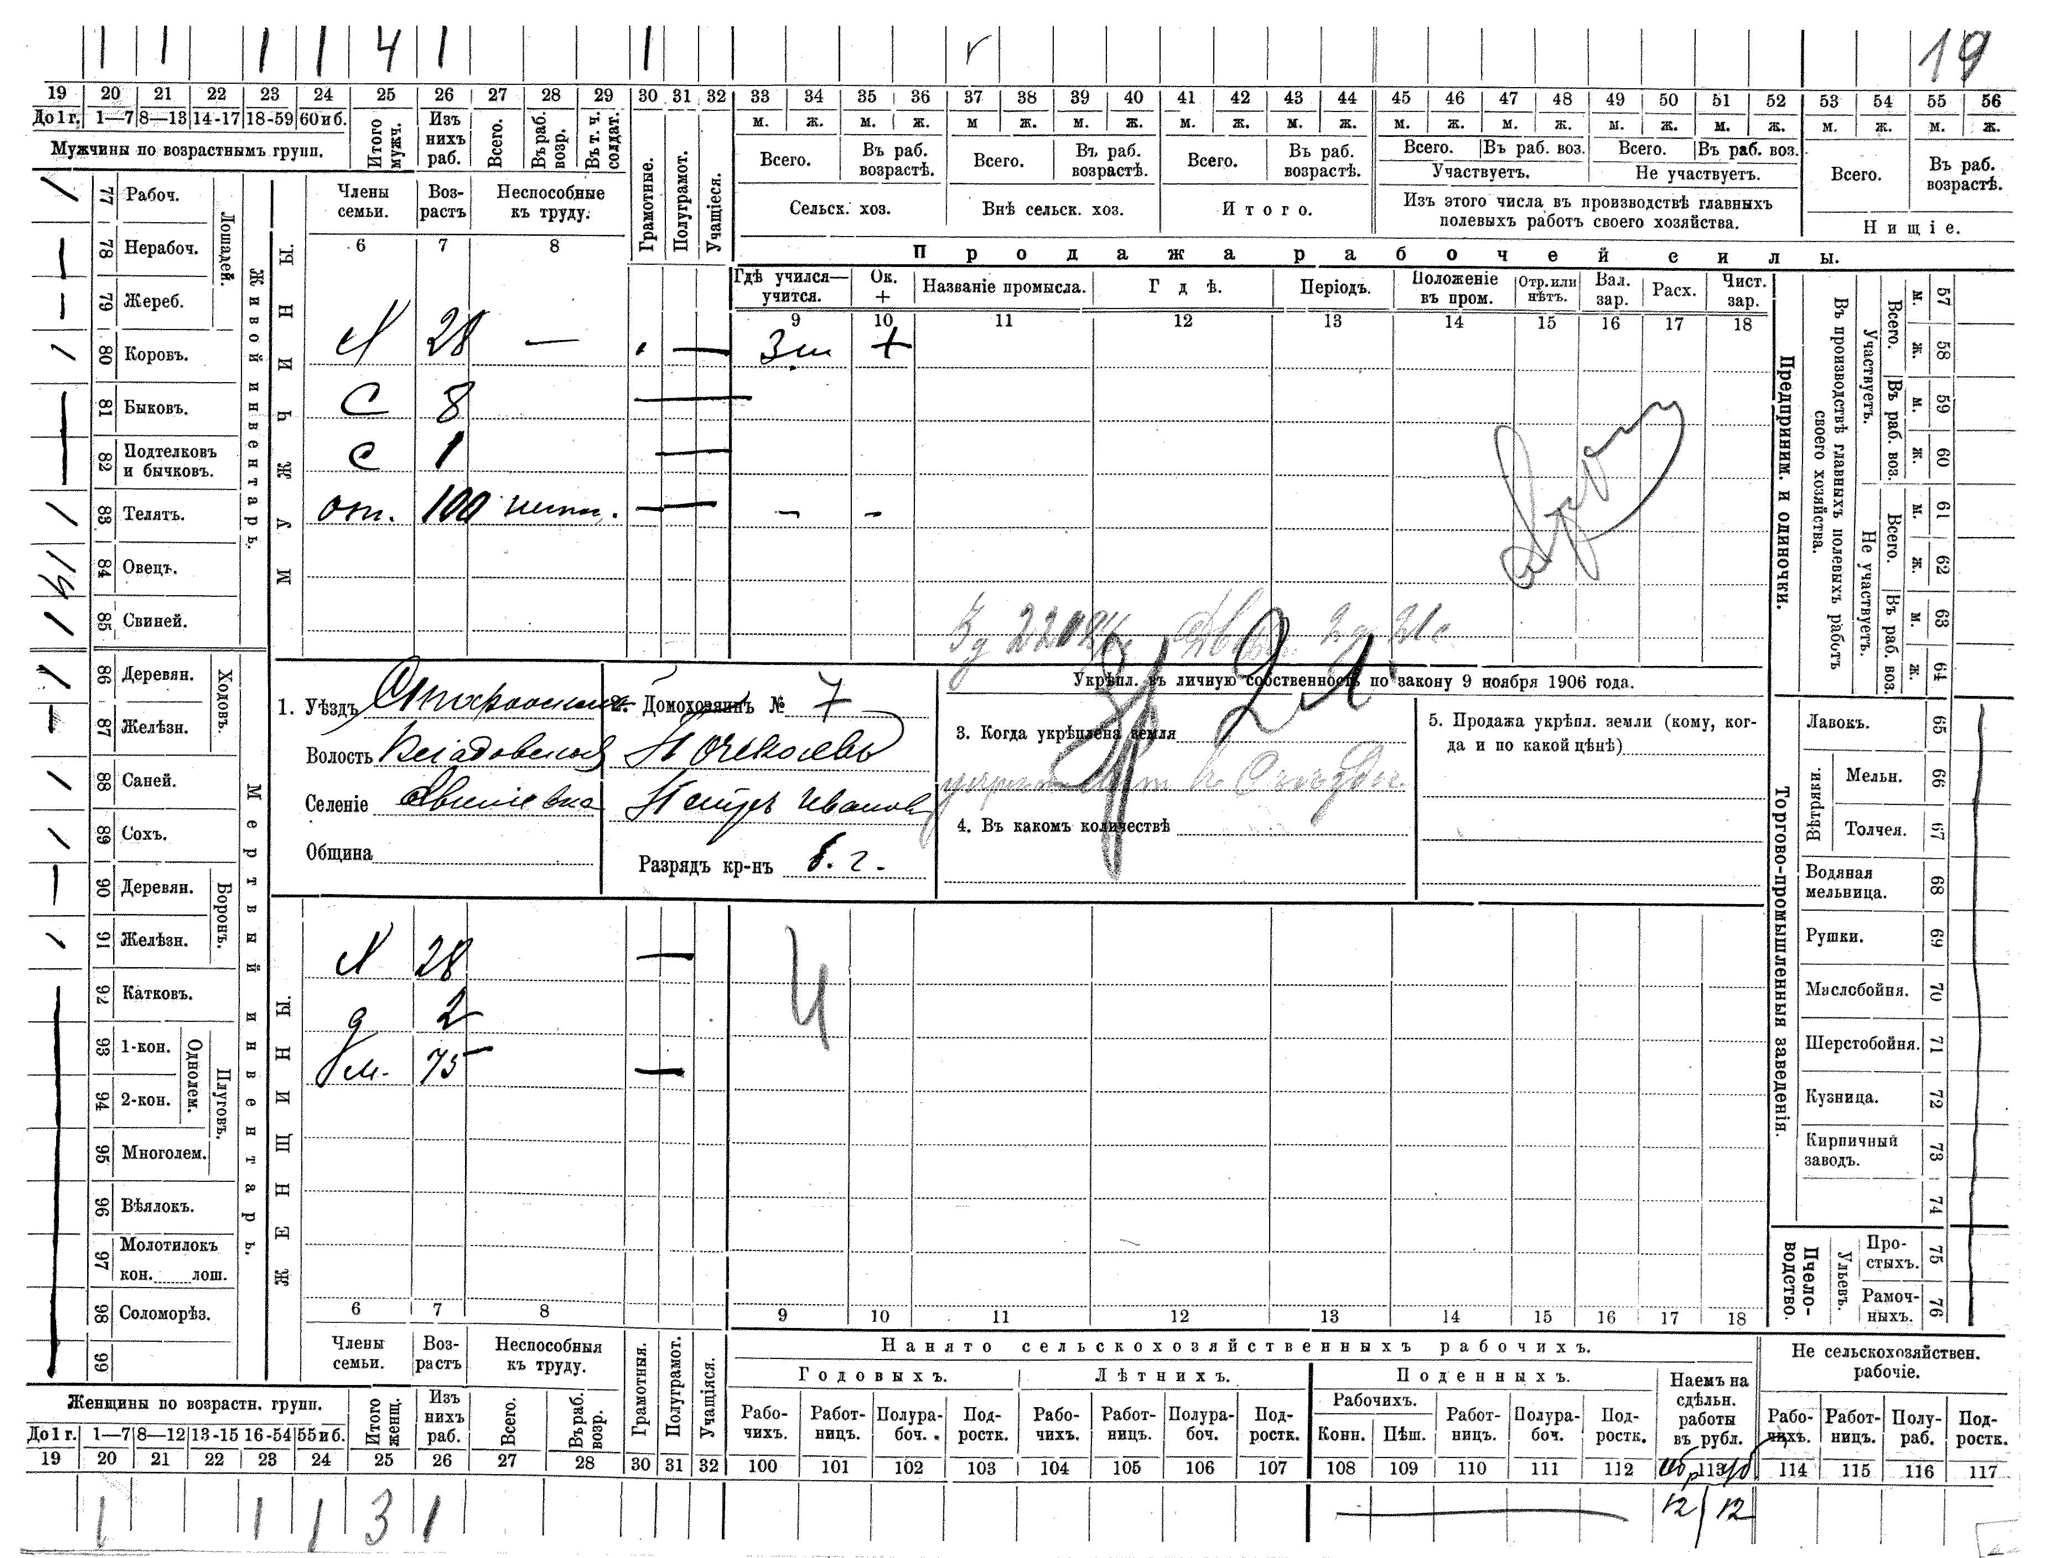 1 1 1 1 4 1 1 19
19 20 21 22 23 24 25 26 27 28 29 30 31 32 33 34 35 36 37 38 39 40 41 42 43 44 45 46 47 48 49 50 51 52 53 54 55 56
До 1 г. 1—7 8—13 14-17 18-59 60 и б. Итого мужч. Изъ нихъ раб. Всего. Въ раб. возр. Въ т. ч. солдат. Грамотные. Полуграмот. Учащіеся.
м. ж. м. ж. м ж. м. ж. м. ж. м. ж. м. ж. м. ж. м. ж. м. ж. м. ж. м. ж.
Мужчины по возрастнымъ групп.
Всего. Въ раб. возрастѣ. Всего. Въ раб. возрастѣ. Всего. Въ раб. возрастѣ. Всего. Въ раб. воз. Всего. Въ раб. воз. Всего. Въ раб. возрастѣ.
Участвуетъ. Не участвуетъ.
Члены семьи. Возрастъ Неспособные къ труду.
Сельск. хоз. Внѣ сельск. хоз. Итого. Изъ этого числа въ производствѣ главныхъ полевыхъ работъ своего хозяйства. Нищіе.
6 7 8
Продажа рабочей силы.
Гдѣ учился—учится. Ок. + Названіе промысла. Гдѣ. Періодъ. Положеніе въ пром. Отр. или нѣтъ. Вал. зар. Расх. Чист. зар.
9 10 11 12 13 14 15 16 17 18
МУЖЧИНЫ.
28 — — +
С 8 —
С 1 —
от. 100 — — - -
Живой инвентарь.
Лошадей.
77 Рабоч.
78 Нерабоч.
79 Жереб.
80 Коровъ.
81 Быковъ.
82 Подтелковъ и бычковъ.
83 Телятъ.
84 Овецъ.
85 Свиней.
Мертвый инвентарь.
Ходовъ.
86 Деревян.
87 Желѣзн.
88 Саней.
89 Сохъ.
Боронъ.
90 Деревян.
91 Желѣзн.
92 Катковъ.
Плуговъ.
Однолем.
93 1-кон.
94 2-кон.
95 Многолем.
96 Вѣялокъ.
97 Молотилокъ кон. лош.
98 Соломорѣз.
99
1. Уѣздъ
Волость
Селеніе
Община
2. Домохозяинъ № 7
Петръ Иванов
Разрядъ кр-нъ б. г.
Укрѣпл. въ личную собственность по закону 9 ноября 1906 года.
3. Когда укрѣплена земля
4. Въ какомъ количествѣ
5. Продажа укрѣпл. земли (кому, когда и по какой цѣнѣ)
ЖЕНЩИНЫ.
28 —
д 2
м. 75 —
6 7 8 9 10 11 12 13 14 15 16 17 18
Члены семьи. Возрастъ Неспособныя къ труду.
Предприним. и одиночки.
Въ производствѣ главныхъ полевыхъ работъ своего хозяйства.
Участвуетъ. Не участвуетъ.
Всего. Въ раб. воз. Всего. Въ раб. воз.
м. ж. м. ж. м. ж. м. ж.
57 58 59 60 61 62 63 64
Торгово-промышленныя заведенія.
Лавокъ. 65
Вѣтрянки.
Мельн. 66
Толчея. 67
Водяная мельница. 68
Рушки. 69
Маслобойня. 70
Шерстобойня. 71
Кузница. 72
Кирпичный заводъ. 73
74
Пчеловодство.
Ульевъ.
Простыхъ. 75
Рамочныхъ. 76
Нанято сельскохозяйственныхъ рабочихъ.
Годовыхъ. Лѣтнихъ. Поденныхъ. Наемъ на сдѣльн. работы въ рубл. Не сельскохозяйствен. рабочіе.
Женщины по возрастн. групп.
Рабочихъ.
До 1 г. 1—7 8—12 13-15 16-54 55 и б. Итого женщ. Изъ нихъ раб. Всего. Въ раб. возр. Грамотныя. Полуграмот. Учащіяся.
Рабочихъ. Работницъ. Полурабоч. Подростк. Рабочихъ. Работницъ. Полурабоч. Подростк. Конн. Пѣш. Работницъ. Полурабоч. Подростк. Рабочихъ. Работницъ. Полураб. Подростк.
19 20 21 22 23 24 25 26 27 28 30 31 32 100 101 102 103 104 105 106 107 108 109 110 111 112 113 114 115 116 117
1 1 1 3 1 12 12